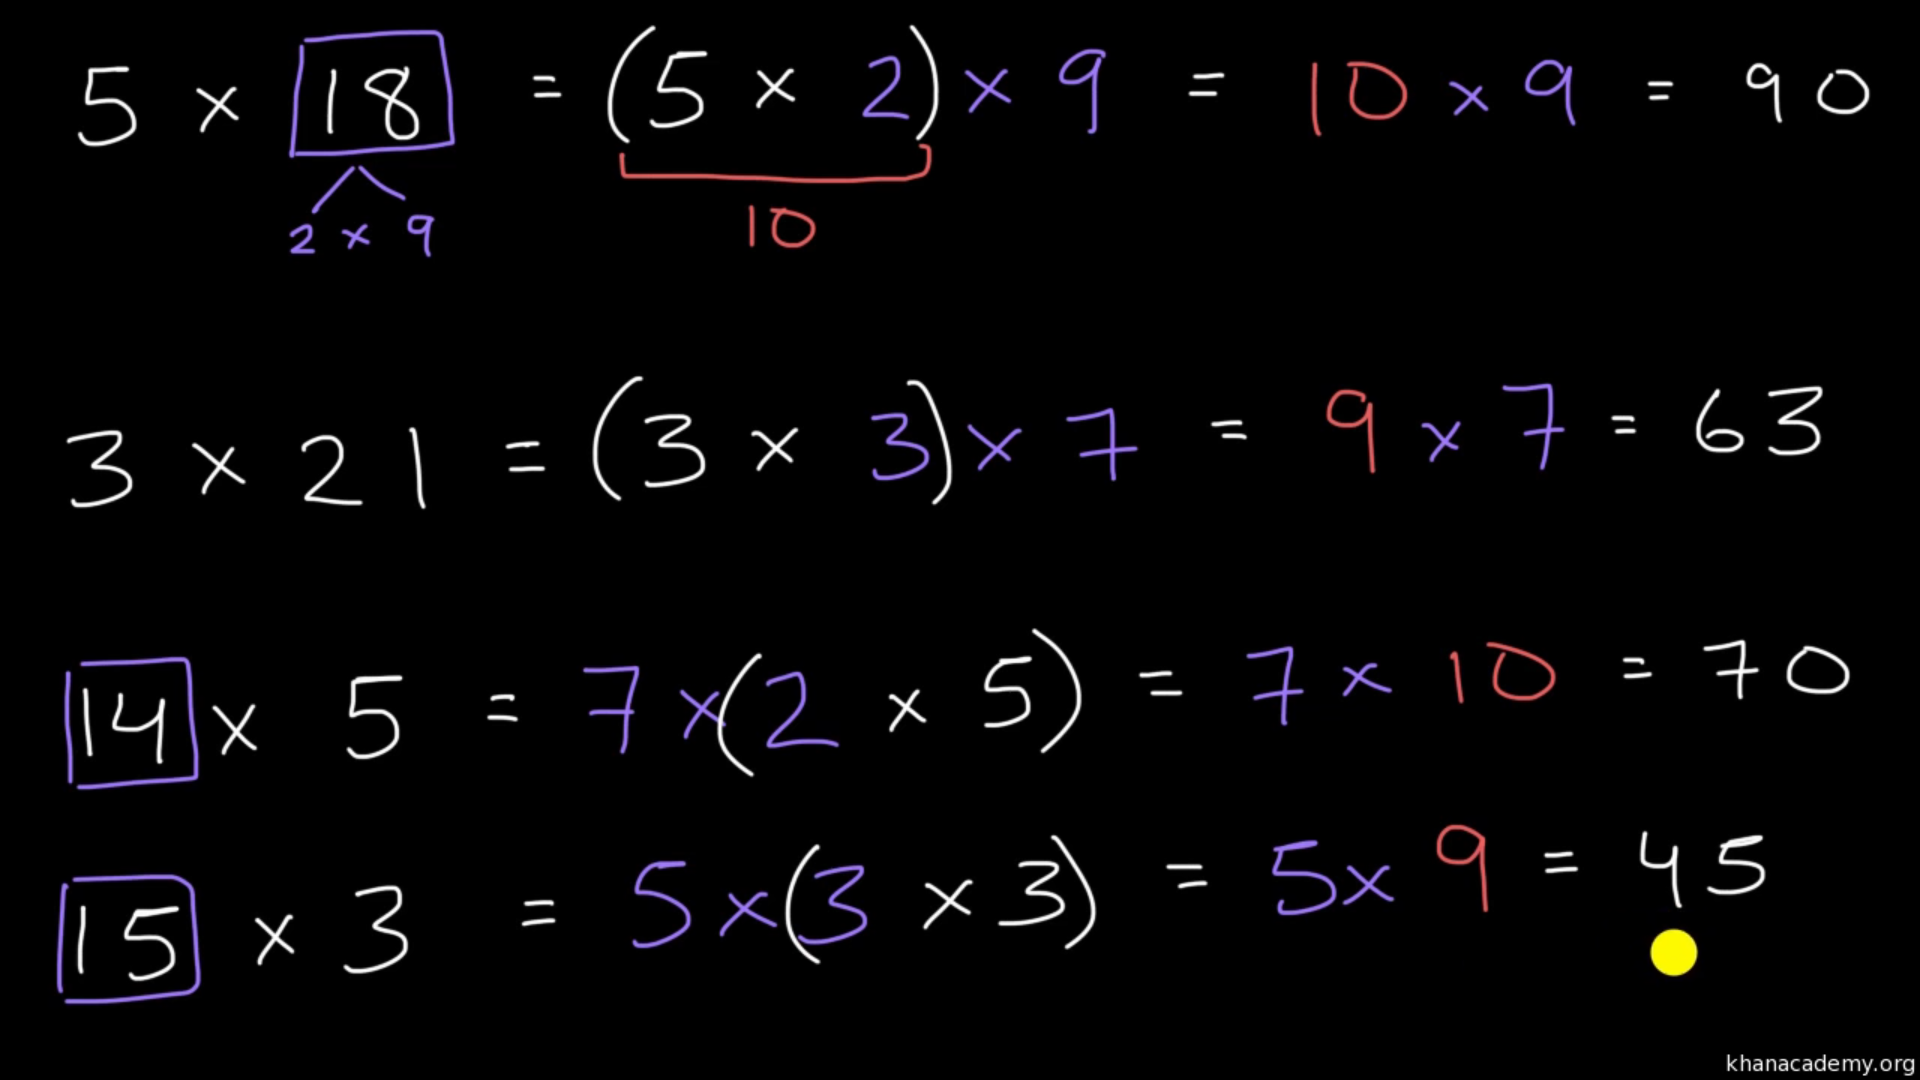 5 × 18 = (5 × 2) × 9 = 10 × 9 = 90
2 × 9
10
3 × 21 = (3 × 3) × 7 = 9 × 7 = 63
14 × 5 = 7 × (2 × 5) = 7 × 10 = 70
15 × 3 = 5 × (3 × 3) = 5 × 9 = 45
khanacademy.org